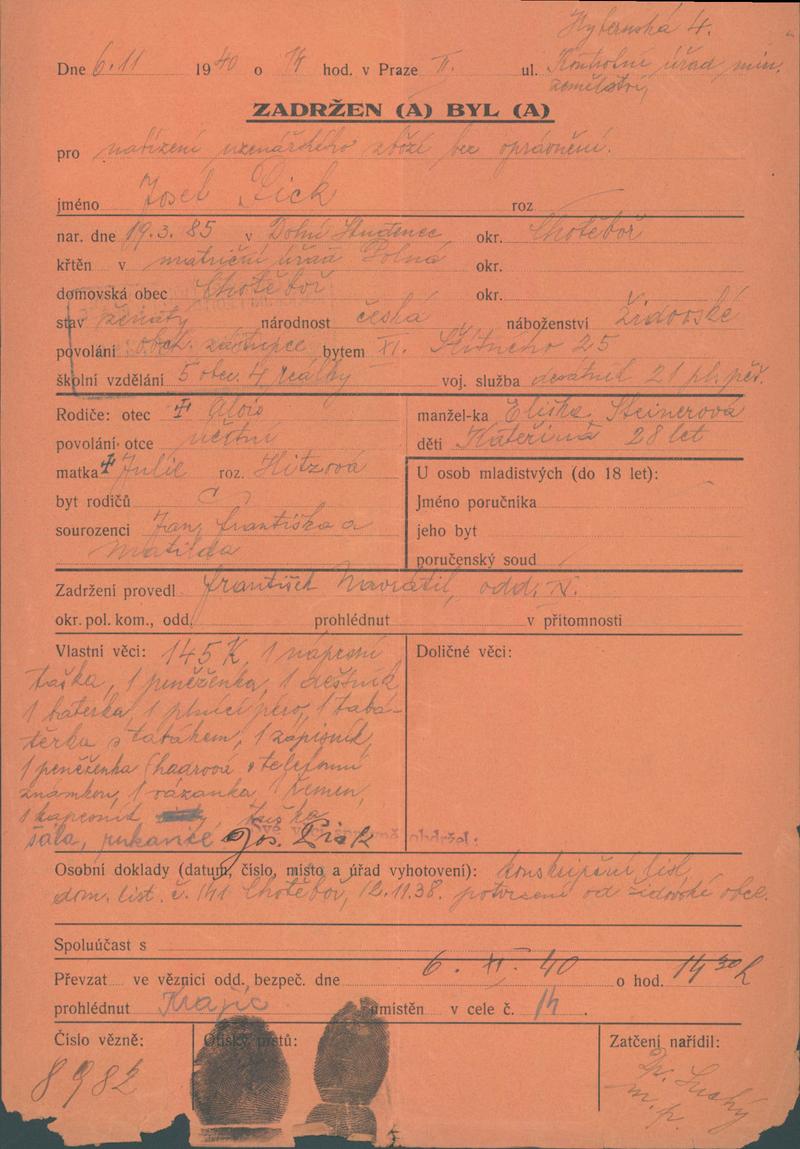 Hybernská 4.
Dne 6.11 1940 o 14 hod. v Praze II. ul. Kontrolní úřad min.
zemělství
ZADRŽEN (A) BYL (A)
pro nabízení uzenářského zboží bez oprávnění.
jméno Josef Pick roz
nar. dne 19.3.85 v Dolní Studenec okr. Chotěboř
křtěn v matriční úřad Polná okr.
domovská obec Chotěboř okr.
stav ženatý národnost česká náboženství židovské
povolání obch. zástupce bytem XI. Štítného 25
školní vzdělání 5 obec. 4 reálky voj. služba desátník 21 pl. pěš.
Rodiče: otec ‡ Alois manžel-ka Eliška Steinerová
povolání otce účetní děti Kateřina 28 let
matka ‡ Julie roz. Hitzová
U osob mladistvých (do 18 let):
byt rodičů Jméno poručníka
sourozenci Jan, Františka a jeho byt
Matilda
poručenský soud
Zadržení provedl František Navrátil, odd. XI.
okr. pol. kom., odd. prohlédnut v přítomnosti
Vlastní věci: 145 K, 1 náprsní Doličné věci:
taška, 1 peněženka, 1 deštník
1 baterka, 1 plnící pero, 1 taba-
těrka s tabákem, 1 zápisník,
1 peněženka s telefonní
známkou, 1 vázanka, 1 řemen,
1 kapesník, tužka
šála, rukavice Jos. Pick
Osobní doklady (datum, číslo, místo a úřad vyhotovení): konskripční list
dom. list. č. 141 Chotěboř, 12.11.38. potvrzení od židovské obce.
Spoluúčast s
Převzat ve věznici odd. bezpeč. dne 6. XI. 40 o hod. 14 30 h
prohlédnut Krajíc umístěn v cele č. 14.
Číslo vězně: Otisky prstů: Zatčení nařídil:
8982 Dr. Suchý
m. p.